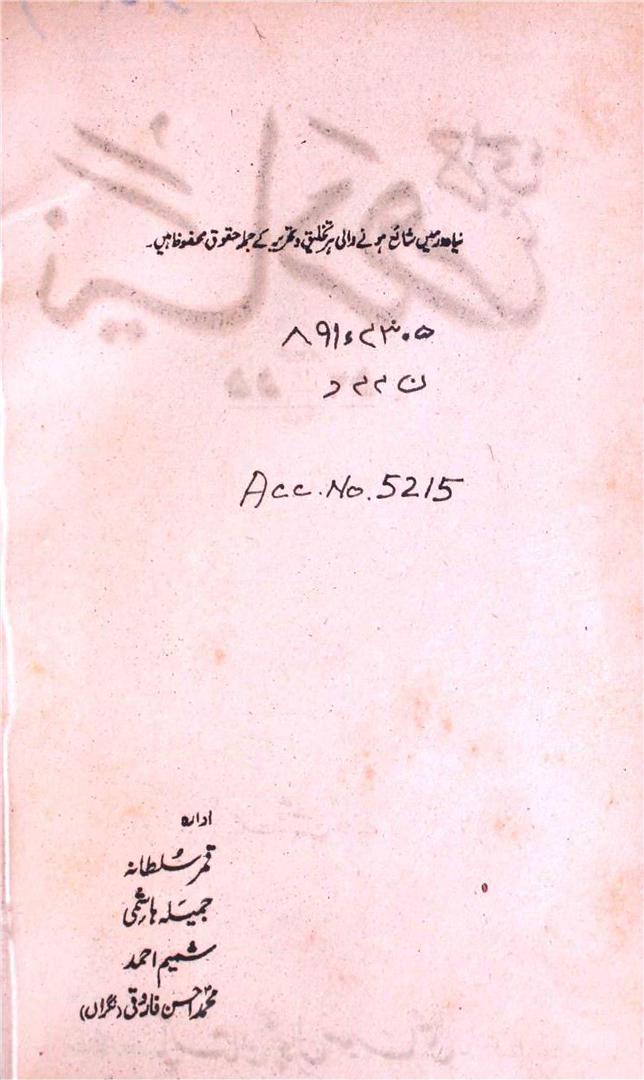 نیا دور میں شائع ہونے والی ہر تخلیق و تحریر کے جملہ حقوق محفوظ ہیں۔
۸۹۱ء۴۳۰۵
ن ۴۴ د
Acc. No. 5215
ادارہ
قمر سلطانہ
جمیلہ ہاشمی
شمیم احمد
محمد احسن فاروقی (نگراں)